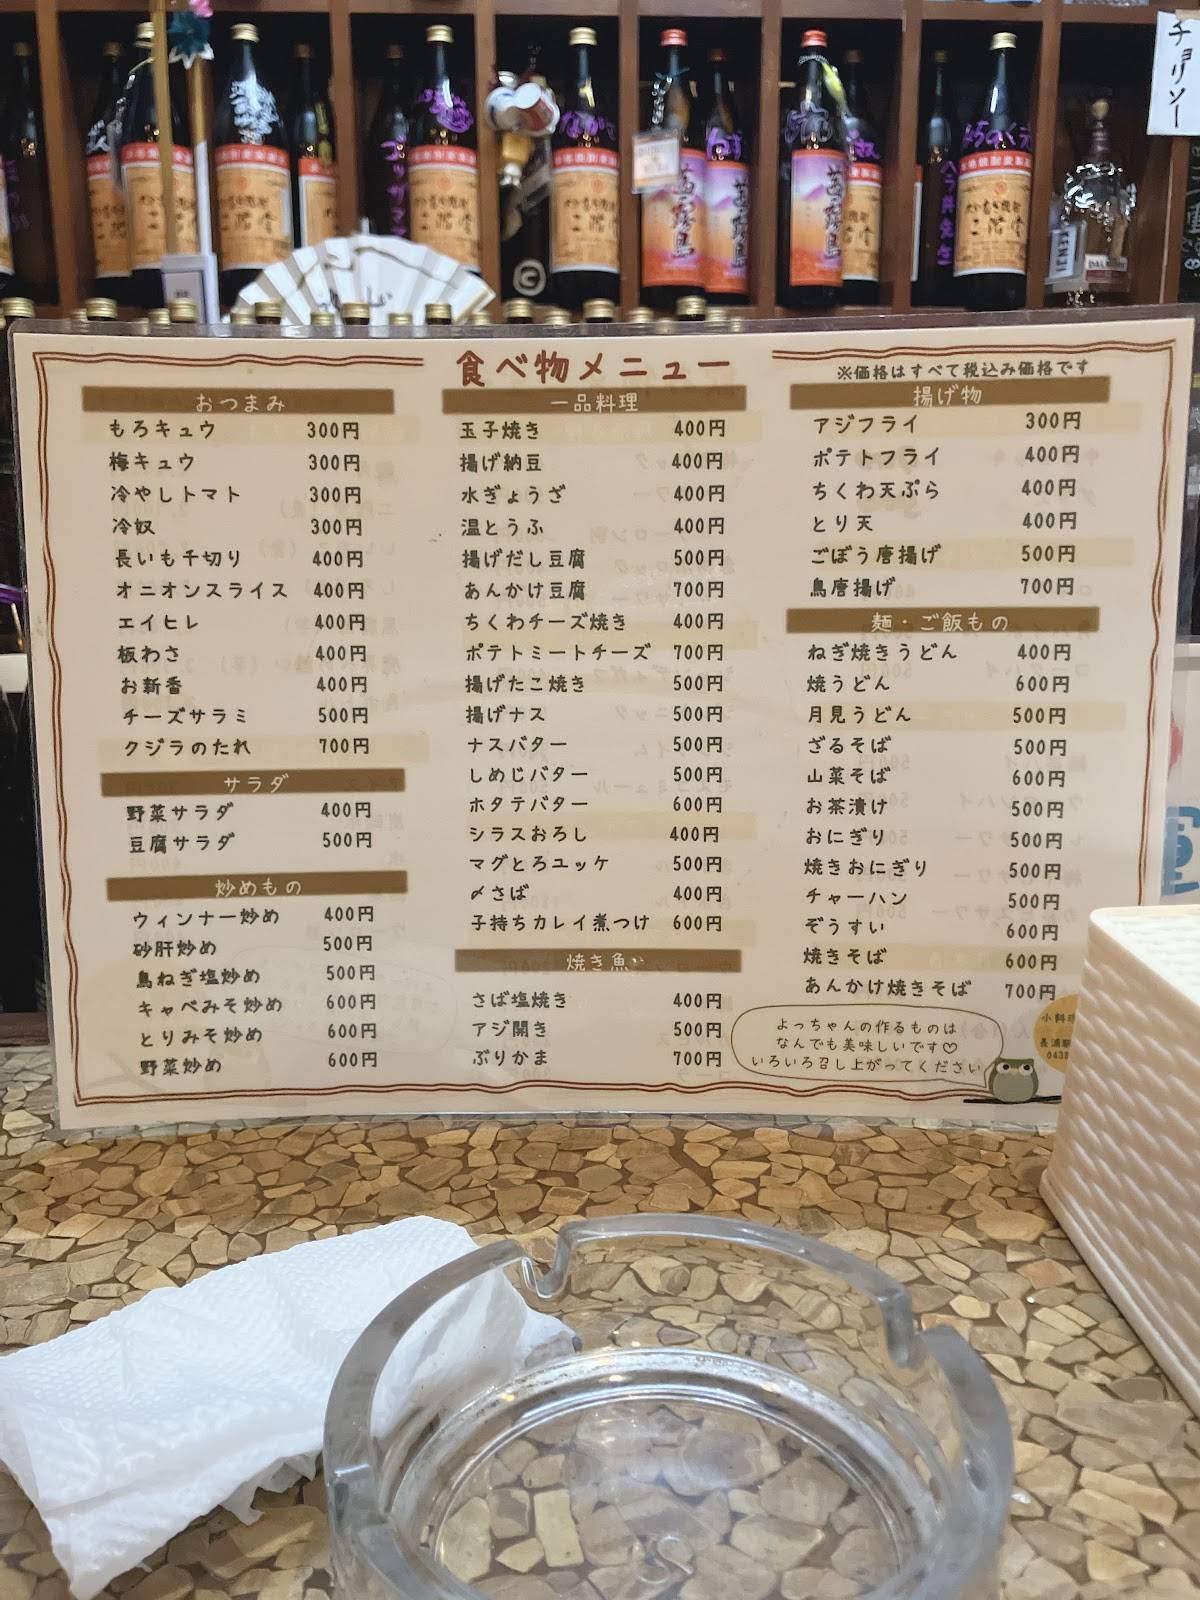 チョリソー
二階堂
二階堂
二階堂
二階堂
茜霧島
茜霧島
茜霧島
二階堂
KENJI
食べ物メニュー
※価格はすべて税込み価格です
おつまみ
もろキュウ 300円
梅キュウ 300円
冷やしトマト 300円
冷奴 300円
長いも千切り 400円
オニオンスライス 400円
エイヒレ 400円
板わさ 400円
お新香 400円
チーズサラミ 500円
クジラのたれ 700円
サラダ
野菜サラダ 400円
豆腐サラダ 500円
炒めもの
ウィンナー炒め 400円
砂肝炒め 500円
鳥ねぎ塩炒め 500円
キャベみそ炒め 600円
とりみそ炒め 600円
野菜炒め 600円
一品料理
玉子焼き 400円
揚げ納豆 400円
水ぎょうざ 400円
温とうふ 400円
揚げだし豆腐 500円
あんかけ豆腐 700円
ちくわチーズ焼き 400円
ポテトミートチーズ 700円
揚げたこ焼き 500円
揚げナス 500円
ナスバター 500円
しめじバター 500円
ホタテバター 600円
シラスおろし 400円
マグとろユッケ 500円
〆さば 400円
子持ちカレイ煮つけ 600円
焼き魚
さば塩焼き 400円
アジ開き 500円
ぶりかま 700円
揚げ物
アジフライ 300円
ポテトフライ 400円
ちくわ天ぷら 400円
とり天 400円
ごぼう唐揚げ 500円
鳥唐揚げ 700円
麺・ご飯もの
ねぎ焼きうどん 400円
焼うどん 600円
月見うどん 500円
ざるそば 500円
山菜そば 600円
お茶漬け 500円
おにぎり 500円
焼きおにぎり 500円
チャーハン 500円
ぞうすい 600円
焼きそば 600円
あんかけ焼きそば 700円
よっちゃんの作るものは
なんでも美味しいです♡
いろいろ召し上がってください
小料理
長浦駅
0438